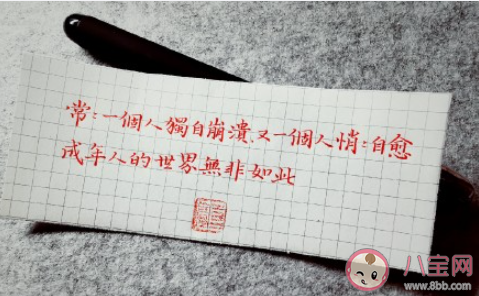 常:一個人獨自崩潰又一個人悄:自愈
成年人的世界無非如此
八宝网
www.8bb.com